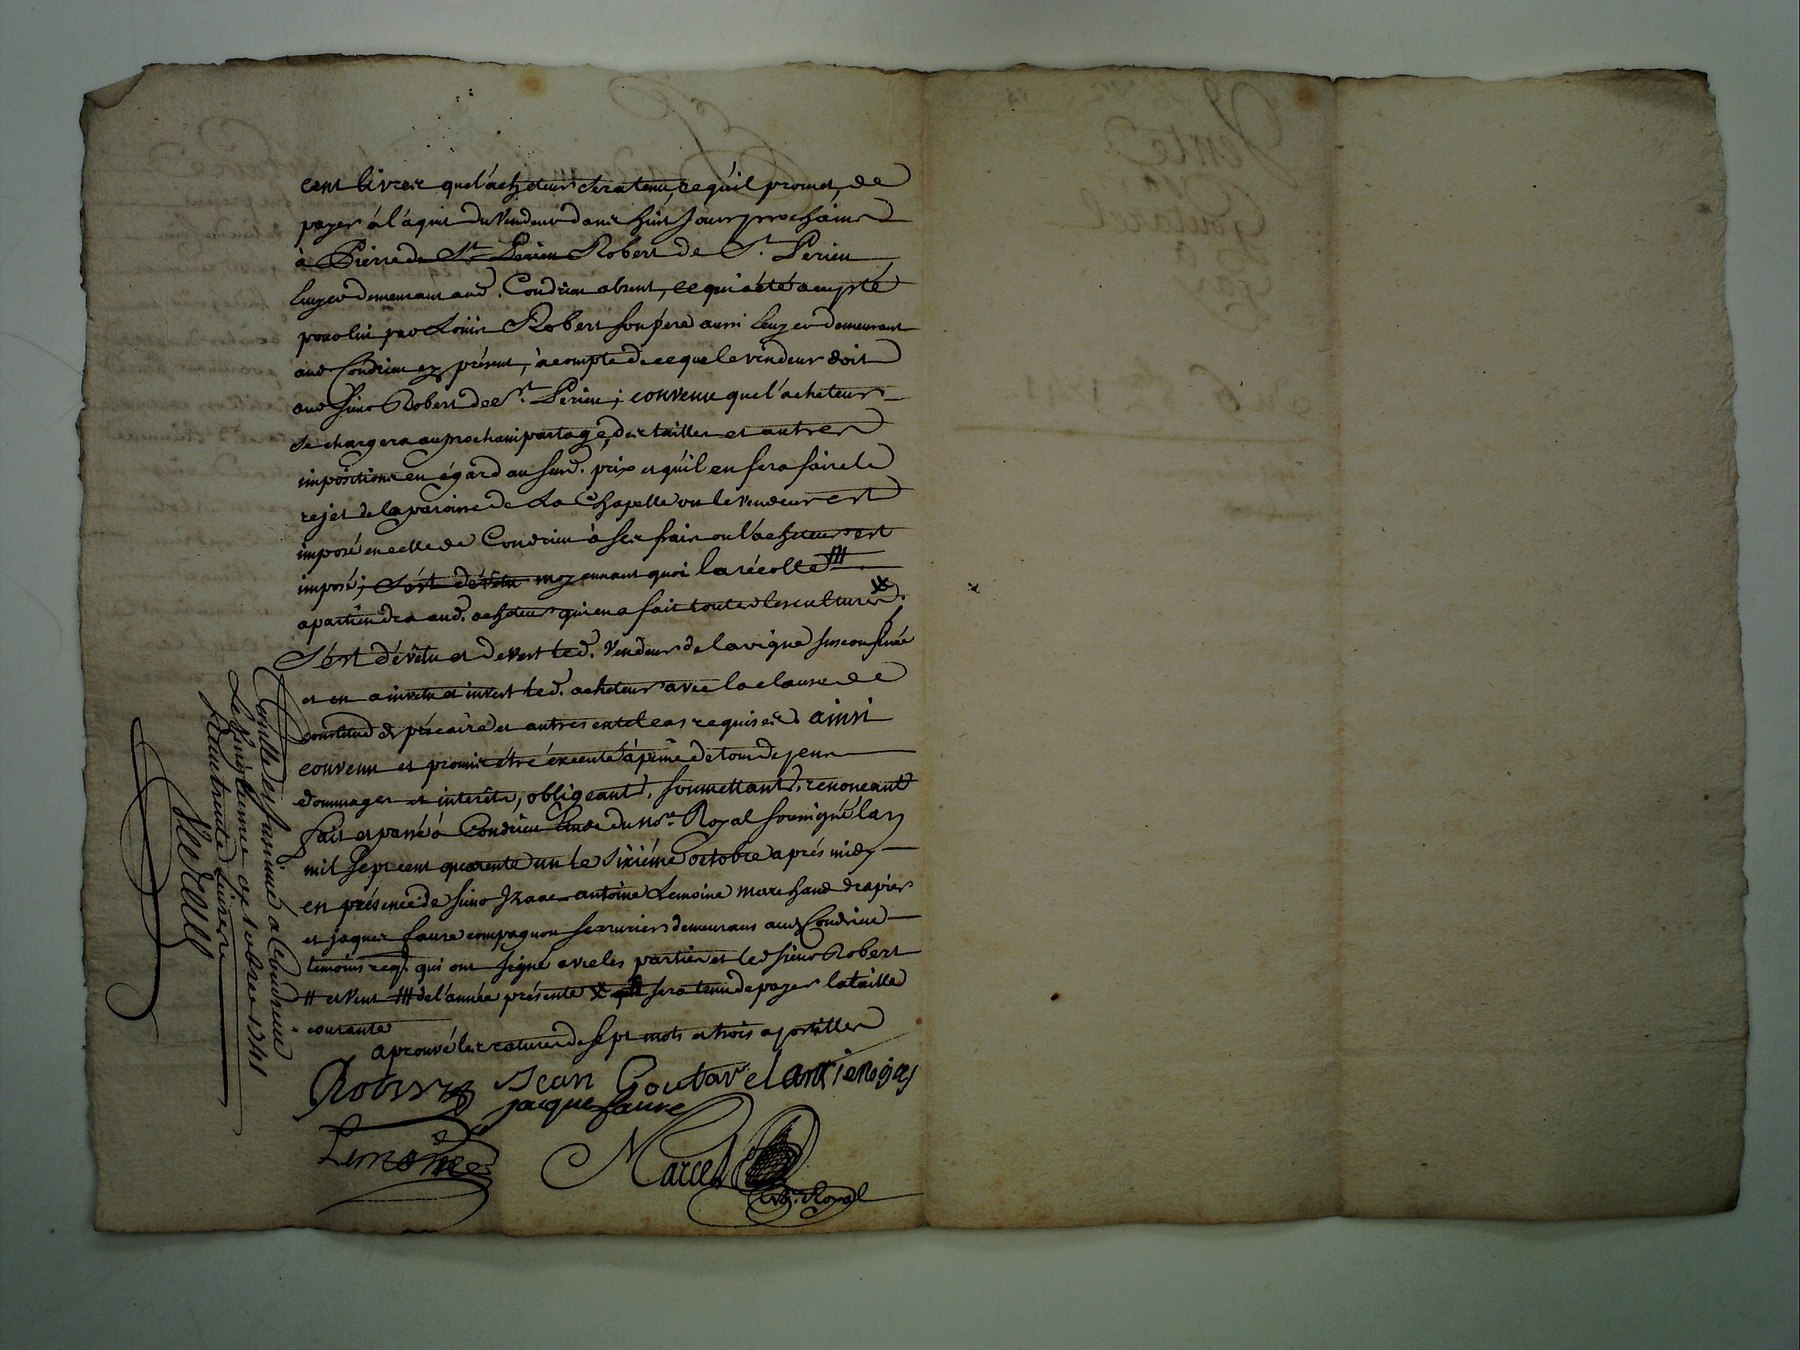 cent livres que l'acheteur sera tenu, ce qu'il promet, de
payer à l'aquit du Vendeur dans huit Jours prochains
à Pierre de St. Perieu Robert de St. Perieu
demeurant aud. Condrieu absent, ce qui a été acepté
pour lui par Loüis Robert son pére aussi demeurant
aud Condrieu ez présent, à compte de ce que le vendeur doit
aud Sieur Robert de St. Perieu; convenu que l'acheteur
se chargera au prochain partage, des tailles et autres
impositions eu égard au susd. prix et qu'il en fera faire le
rejet de la paroisse de La Chapelle ou le vendeur est
imposé en celle de Condrieu à ses frais ou l'acheteur est
imposé; S'est dévêtu moyennant quoi la récolte #
apartiendra aud. acheteur qui en a fait toutes les cultures
S'est dévêtu et devest led. Vendeur de la vigne sus confinée
et en a invetu et invest led. acheteur avec la clause de
constitud et précaire et autres en tel cas requises. ainsi
convenu et promis être éxecuté à peine de tous depens
dommages et interêts, obligeant, soumettant, renonceant
fait et passé à Condrieu Etude du No.re Royal soussigné l'an
mil sept cent quarente un le sixiéme octobre aprés midy
en présence de sieur Izaac antoine Lemoine marchand drapier
et jaques faure compagnon serrurier demeurans aud Condrieu
temoins req. qui ont signé avec les parties et led sieur Robert
# et vent # de l'année présente sera tenu de payer la taille
courante
aprouvé les ratures de sept mots et trois apostilles
Robert Jean Goutarel
jacque faure
Lemoine
Marcel
No.re Royal
Controllé et insinué à Condrieu
Le octobre 1741